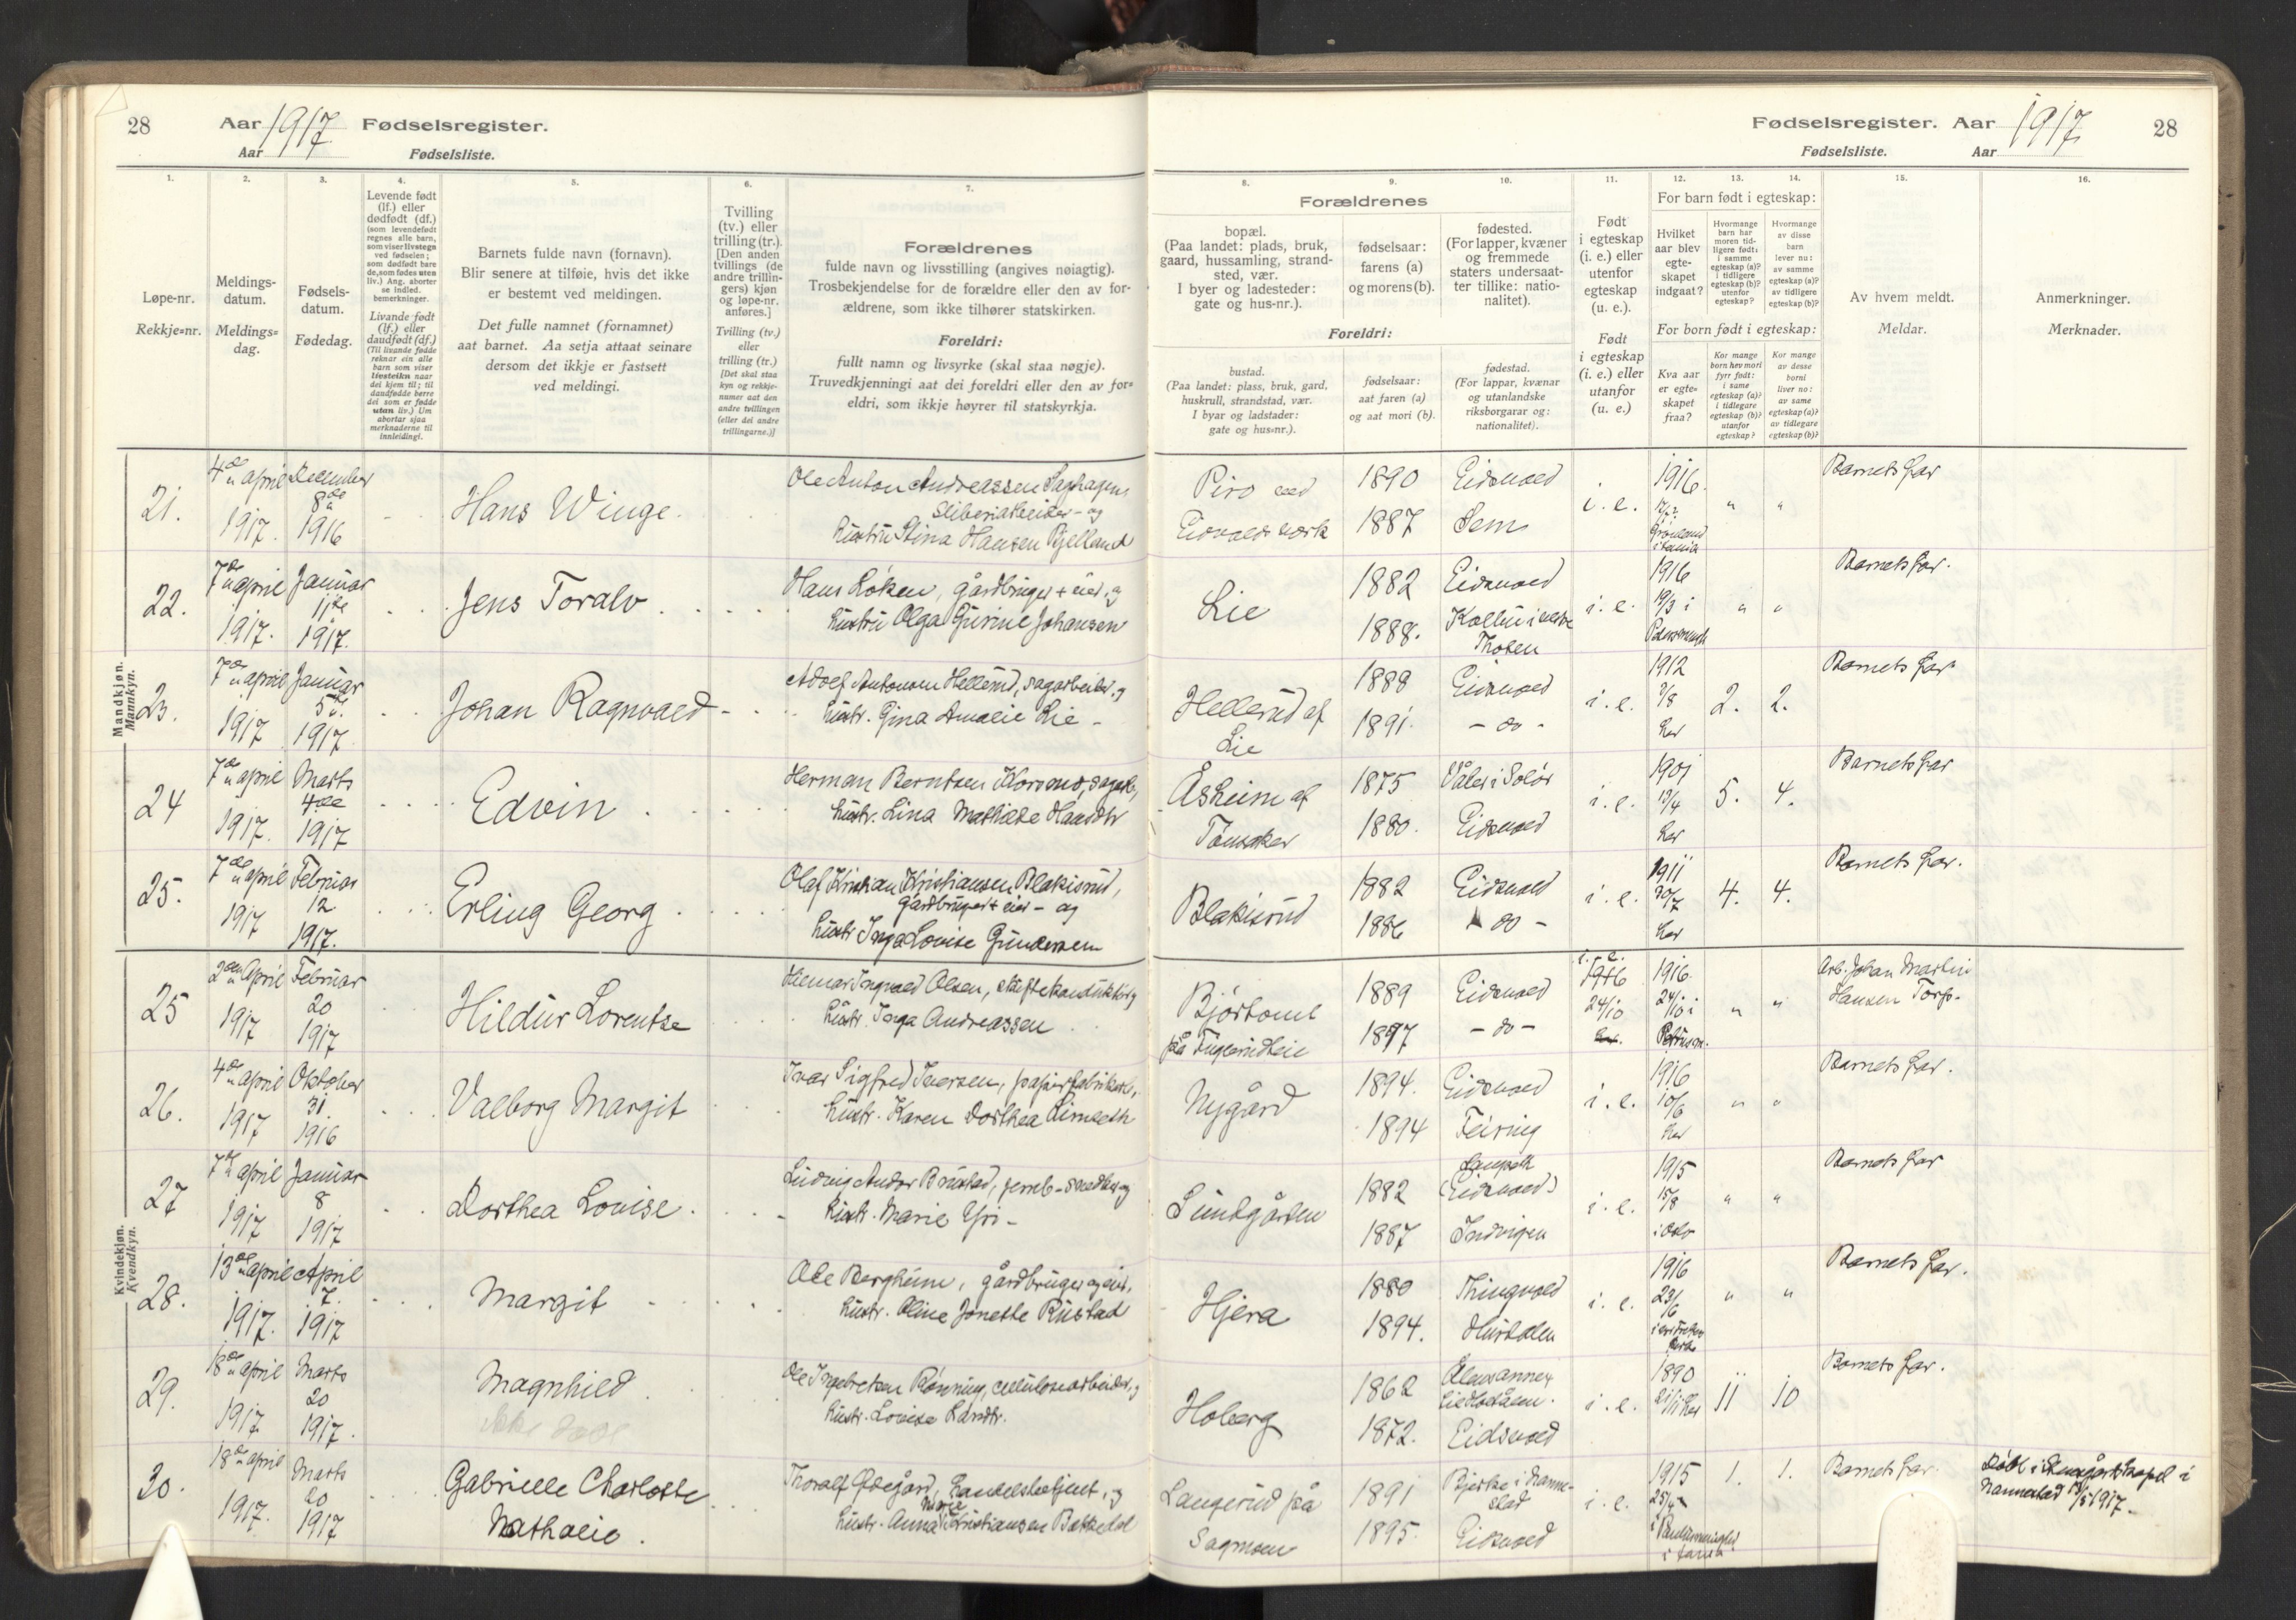 28 Aar 1917 Fødselsregister.
Aar Fødselsliste.
Fødselsregister. Aar 1917 28
Fødselsliste. Aar
1. 2. 3. 4. 5. 6. 7.
Løpe-nr.
Rekkje=nr.
Meldings-
datum.
Meldings=
dag.
Fødsels-
datum.
Fødedag.
Levende født
(lf.) eller
dødfødt (df.)
(som levendefødt
regnes alle barn,
som viser livstegn
ved fødselen;
som dødfødt bare
de, som fødes uten
liv.) Ang. aborter
se indled.
bemerkninger.
Livande født
(lf.) eller
daudfødt (df.)
(Til livande fødde
reknar ein alle
barn som viser
livsteikn naar
dei kjem til; til
daudfødde berre
dei som er fødde
utan liv.) Um
abortar sjaa
merknaderne til
innleidingi.
Barnets fulde navn (fornavn).
Blir senere at tilføie, hvis det ikke
er bestemt ved meldingen.
Det fulle namnet (fornamnet)
aat barnet. Aa setja attaat seinare
dersom det ikkje er fastsett
ved meldingi.
Tvilling
(tv.) eller
trilling (tr.).
[Den anden
tvillings (de
andre trillin-
gers) kjøn
og løpe-nr.
anføres.]
Tvilling (tv.)
eller
trilling (tr.)
[Det skal staa
kyn og rekkje-
numer aat den
andre tvillingen
(eller dei andre
trillingarne.)]
Forældrenes
fulde navn og livsstilling (angives nøiagtig).
Trosbekjendelse for de forældre eller den av for-
ældrene, som ikke tilhører statskirken.
Foreldri:
fullt namn og livsyrke (skal staa nøgje).
Truvedkjenningi aat dei foreldri eller den av for=
eldri, som ikkje høyrer til statskyrkja.
8. 9. 10. 11. 12. 13. 14. 15. 16.
Forældrenes
bopæl.
(Paa landet: plads, bruk,
gaard, hussamling, strand-
sted, vær.
I byer og ladesteder:
gate og hus-nr.).
fødselsaar:
farens (a)
og morens (b).
fødested.
(For lapper, kvæner
og fremmede
staters undersaat-
ter tillike: natio-
nalitet).
Foreldri:
bustad.
(Paa landet: plass, bruk, gard,
huskrull, strandstad, vær.
I byar og ladstader:
gate og hus=nr.).
fødselsaar:
aat faren (a)
og aat mori (b).
fødestad.
(For lappar, kvænar
og utanlandske
riksborgarar og:
nationalitet).
Født
i egteskap
(i. e.) eller
utenfor
egteskap
(u. e.).
Født
i egteskap
(i. e.) eller
utanfor
(u. e.)
For barn født i egteskap:
Hvilket
aar blev
egte-
skapet
indgaat?
Hvormange
barn har
moren tid-
ligere født:
i samme
egteskap (a)?
i tidligere
egteskap (b)?
utenfor
egteskap?
Hvormange
av disse
barn
lever nu:
av samme
egteskap (a)?
av tidligere
egteskap (b)?
For born født i egteskap:
Kva aar
er egte=
skapet
fraa?
Kor mange
born hev mori
fyrr født:
i same
egteskap (a)?
i tidlegare
egteskap (b)?
utanfor
egteskap?
Kor mange
av desse
borni
liver no:
av same
egteskap (a)?
av tidlegare
egteskap (b)?
Av hvem meldt.
Meldar.
Anmerkninger.
Merknader.
Mandkjøn.
Mannkyn.
21. 4de april 1917. December 8de 1916 Hans Winge.
Ole Anton Andreassen Saghagen,
Sliberiarbeider - og
hustru Stina Hansen Bjelland
Eidsvolds værk
1890 Eidsvold
1887 Sem
i. e. 1916. Barnets far
22. 7de april 1917. Januar 11te 1917. Jens Toralv
Hans Løken, gårdbruger + eier, og
hustru Olga Gurine Johansen
Lie
1882 Eidsvold
1888. Kolbu i vestre
Thoten
i. e. 1916 19/3 i Barnets far.
23. 7de april 1917 Januar 5te 1917 Johan Ragnvald
Adolf Antonsen Hellerud, sagarbeider, og
hustr. Gina Amalie Lie
Hellerud af
Lie
1888 Eidsvold
1891. - do -
i. e. 1912 her 2. 2. Barnets far
24 7de april 1917. Marts 4de 1917 Edvin
Herman Berntsen Kormo, sagarb.,
hustr. Lina Mathilde Haardtr
Åsheim af
Tønsaker
1875 Våler i Solør
1880. Eidsvold
i. e. 1901 13/4 her 5. 4. Barnets far
25. 7de april 1917 Februar 12. 1917. Erling Georg
Olaf Kristian Kristiansen Blakisrud,
gårdbruger + eier - og
hustr Inga Lovise Gundersen
Blakisrud
1882 Eidsvold
1886 - do -
i. e. 1911 20/7 her 4. 4. Barnets far.
Kvindekjøn.
Kvendkyn.
25 2den April 1917 Februar 20 1917 Hildur Lorentse
Hilmar Ingvald Olsen,
hustr. Inga Andreassen
på
1889 Eidsvold
1897 - do -
i. e. 1916 24/10 1916. 24/10 i Arb. Johan Martin
Hansen Torp.
26. 4de april 1917 Oktober 31. 1916 Valborg Margit
Ivar Sigfred Iversen, papirfabrikarb.,
hustr. Karen Dorthea Limseth
Nygård
1894. Eidsvold
1894 Feiring
i. e. 1916 10/6 her Barnets far.
27 7de april 1917 Januar 8 1917 Dorthea Lovise.
Ludvig Andor Brustad,
hustr. Marie Yri -
Lundgården
1882 (Eidsvold)
1887 Indvigen
i. e. 1915 15/8 Barnets far
28. 13de april 1917. April 7. 1917 Margit
Ole Bergheim, gårdbruger og eier,
hustr. Oline Jonette Rustad
Hjera
1880 Thingvold
1894. Hurdalen
i. e. 1916 23/6 Barnets far.
29. 18de april 1917 Marts 20 1917. Magnhild
Ole Ingebretsen Rønning, cellulosearbeider, og
hustr. Lovise Larsdtr.
Hoberg
1862
1872. Eidsvold
i. e. 1890 her 11 10 Barnets far.
30. 18de april 1917. Marts 20 1917 Gabrielle Charlotte
Nathalie.
Thoralf Ødegård, handelsbetjent, og
hustr. Anna Marie Kristiansen Bakkedal
Langerud på
Sagmoen
1891 Bjerke i Nanne-
stad
1895. Eidsvold
i. e. 1915 1. 1. Barnets far.
Døbt i Stensgård kapel i
Nannestad 1917.